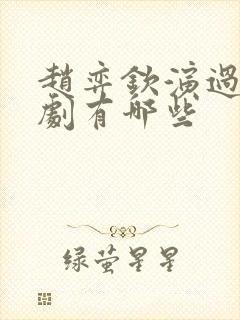 趙弈欽演過
劇有哪些
綠螢星星